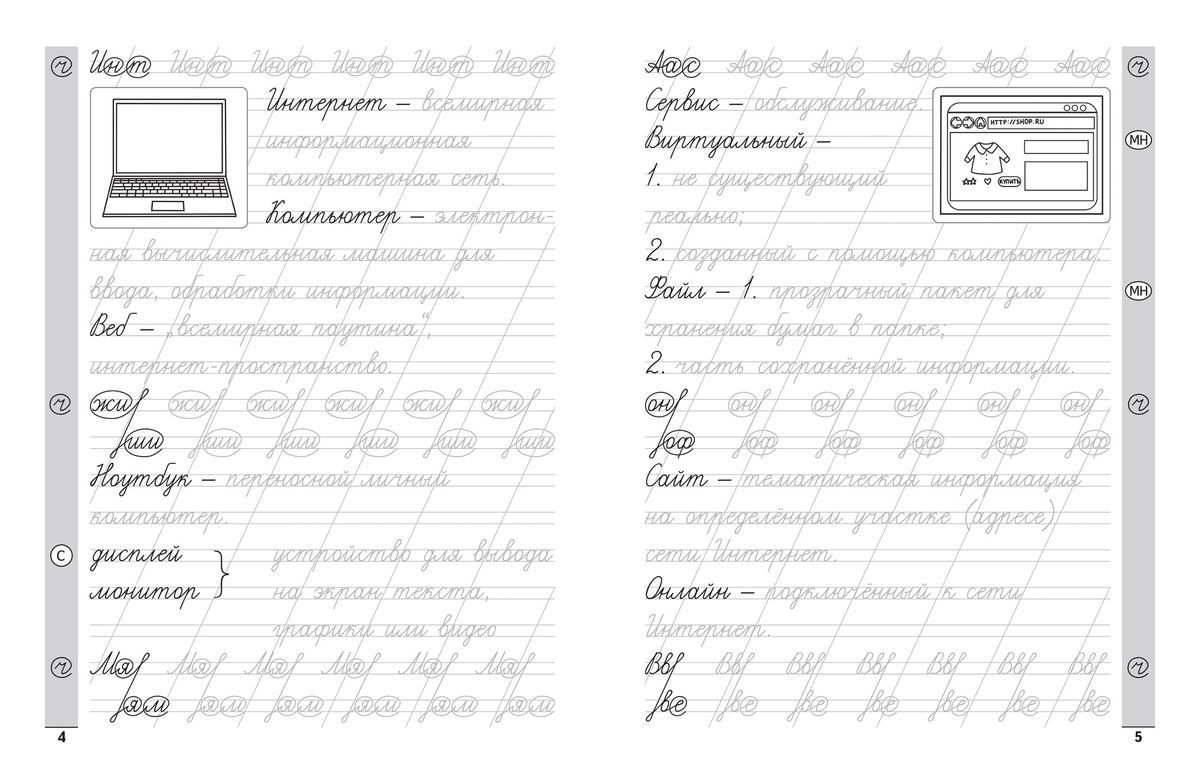 Инт Инт Инт Инт Инт Инт
Интернет – всемирная
информационная
компьютерная сеть.
Компьютер – электрон-
ная вычислительная машина для
ввода, обработки информации.
Веб – „всемирная паутина“,
интернет-пространство.
жи жи жи жи жи жи
ши ши ши ши ши ши
Ноутбук – переносной личный
компьютер.
дисплей } устройство для вывода
монитор } на экран текста,
графики или видео
Мя Мя Мя Мя Мя Мя
ям ям ям ям ям ям
4
Аас Аас Аас Аас Аас Аас
Сервис – обслуживание.
HTTP://SHOP.RU
КУПИТЬ
Виртуальный –
МН
1. не существующий
реально;
2. созданный с помощью компьютера.
Файл – 1. прозрачный пакет для
МН
хранения бумаг в папке;
2. часть сохранённой информации.
он он он он он он
оф оф оф оф оф оф
Сайт – тематическая информация
на определённом участке (адресе)
сети Интернет.
Онлайн – подключённый к сети
Интернет.
Вв Вв Вв Вв Вв Вв
ве ве ве ве ве ве
5